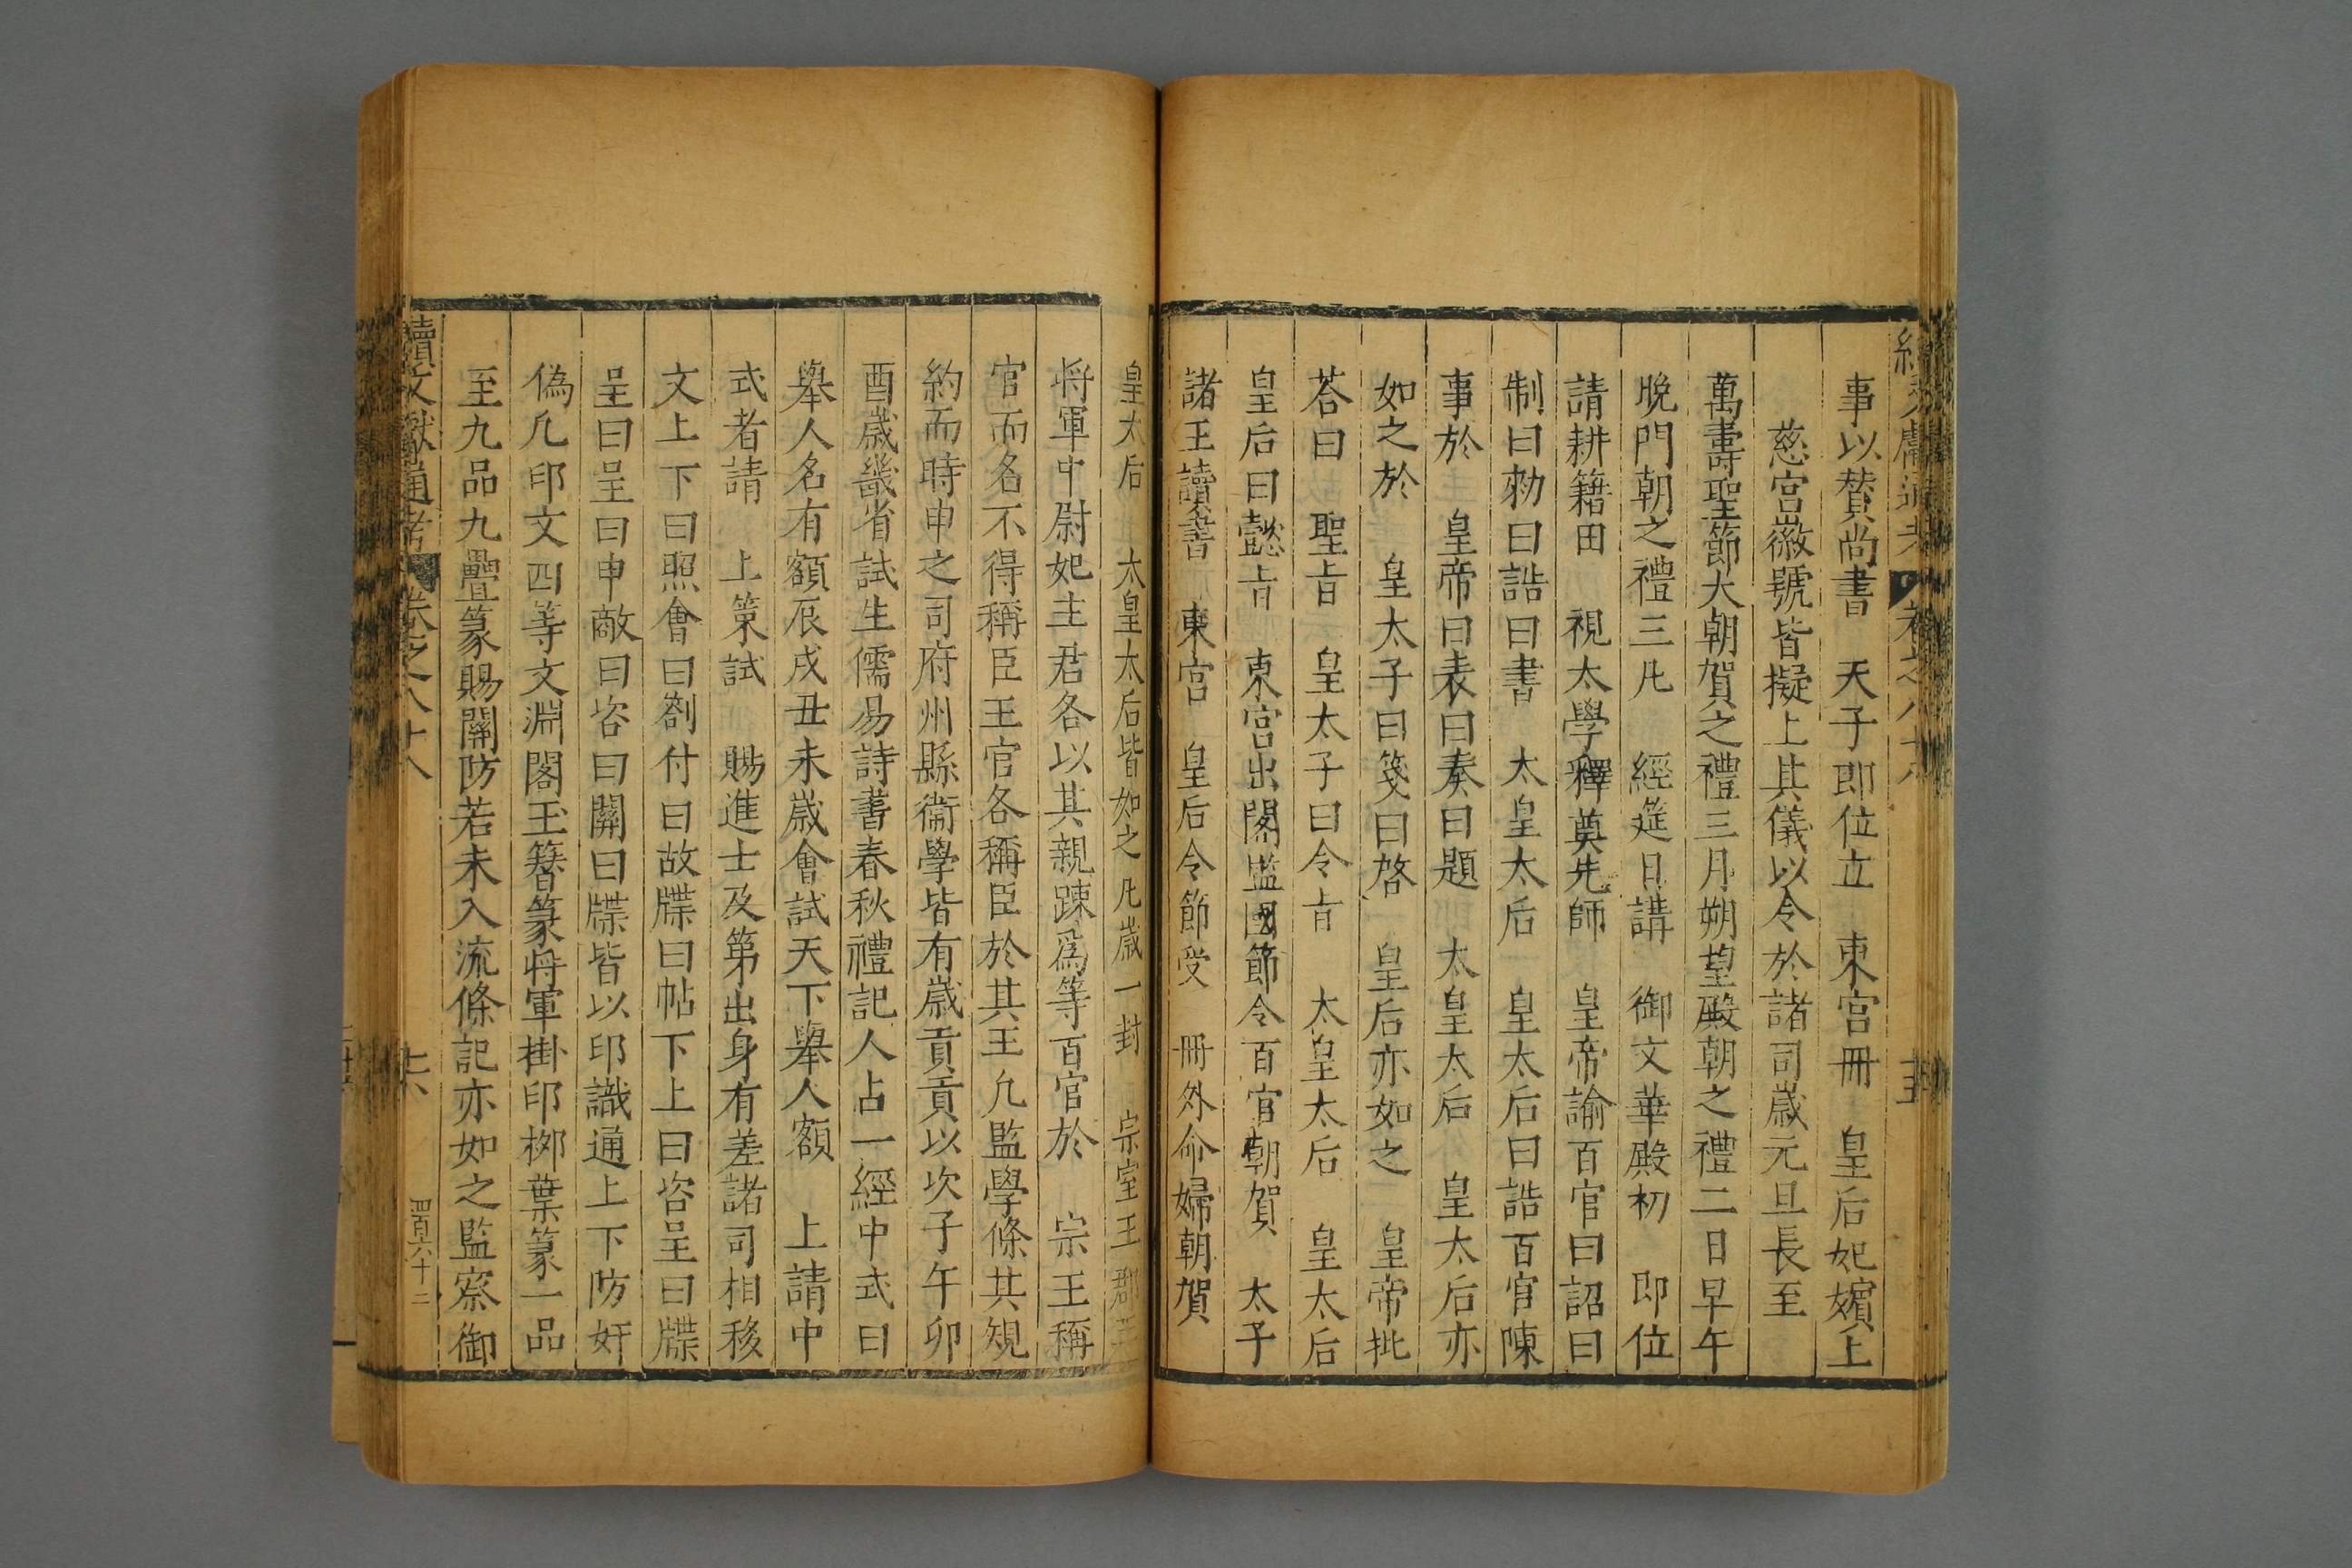 事以賛尚書　天子即位立　東宮冊　皇后妃嬪上
慈宮徽號皆擬上其儀以令於諸司歲元旦長至
萬壽聖節大朝賀之禮三月朔望殿朝之禮二日早午
晚門朝之禮三凡　經筵日講　御文華殿初　即位
請耕籍田　視太學釋奠先師　皇帝諭百官曰詔曰
制曰勑曰誥曰書　太皇太后　皇太后曰誥百官陳
事於　皇帝曰表曰奏曰題　太皇太后　皇太后亦
如之於　皇太子曰箋曰啓　皇后亦如之　皇帝批
荅曰　聖旨　皇太子曰令旨　太皇太后　皇太后
皇后曰懿旨　東宮出閣監國節令百官朝賀　太子
諸王讀書　東宮　皇后令節受　冊外命婦朝賀
皇太后　太皇太后皆如之凡歲一封　宗室王郡王
將軍中尉妃主君各以其親踈爲等百官於　宗王稱
官而名不得稱臣王官各稱臣於其王凡監學條其規
約而時申之司府州縣衞學皆有歲貢貢以次子午卯
酉歲畿省試生儒易詩書春秋禮記人占一經中式曰
舉人名有額辰戌丑未歲會試天下舉人額　上請中
式者請　上策試　賜進士及第出身有差諸司相移
文上下曰照會曰劄付曰故牒曰帖下上曰咨呈曰牒
呈曰呈曰申敵曰咨曰關曰牒皆以印識通上下防奸
偽凡印文四等文淵閣玉筯篆將軍掛印柳葉篆一品
至九品九疊篆賜關防若未入流條記亦如之監察御
續文獻通考　卷之八十八　十六　四百六十二